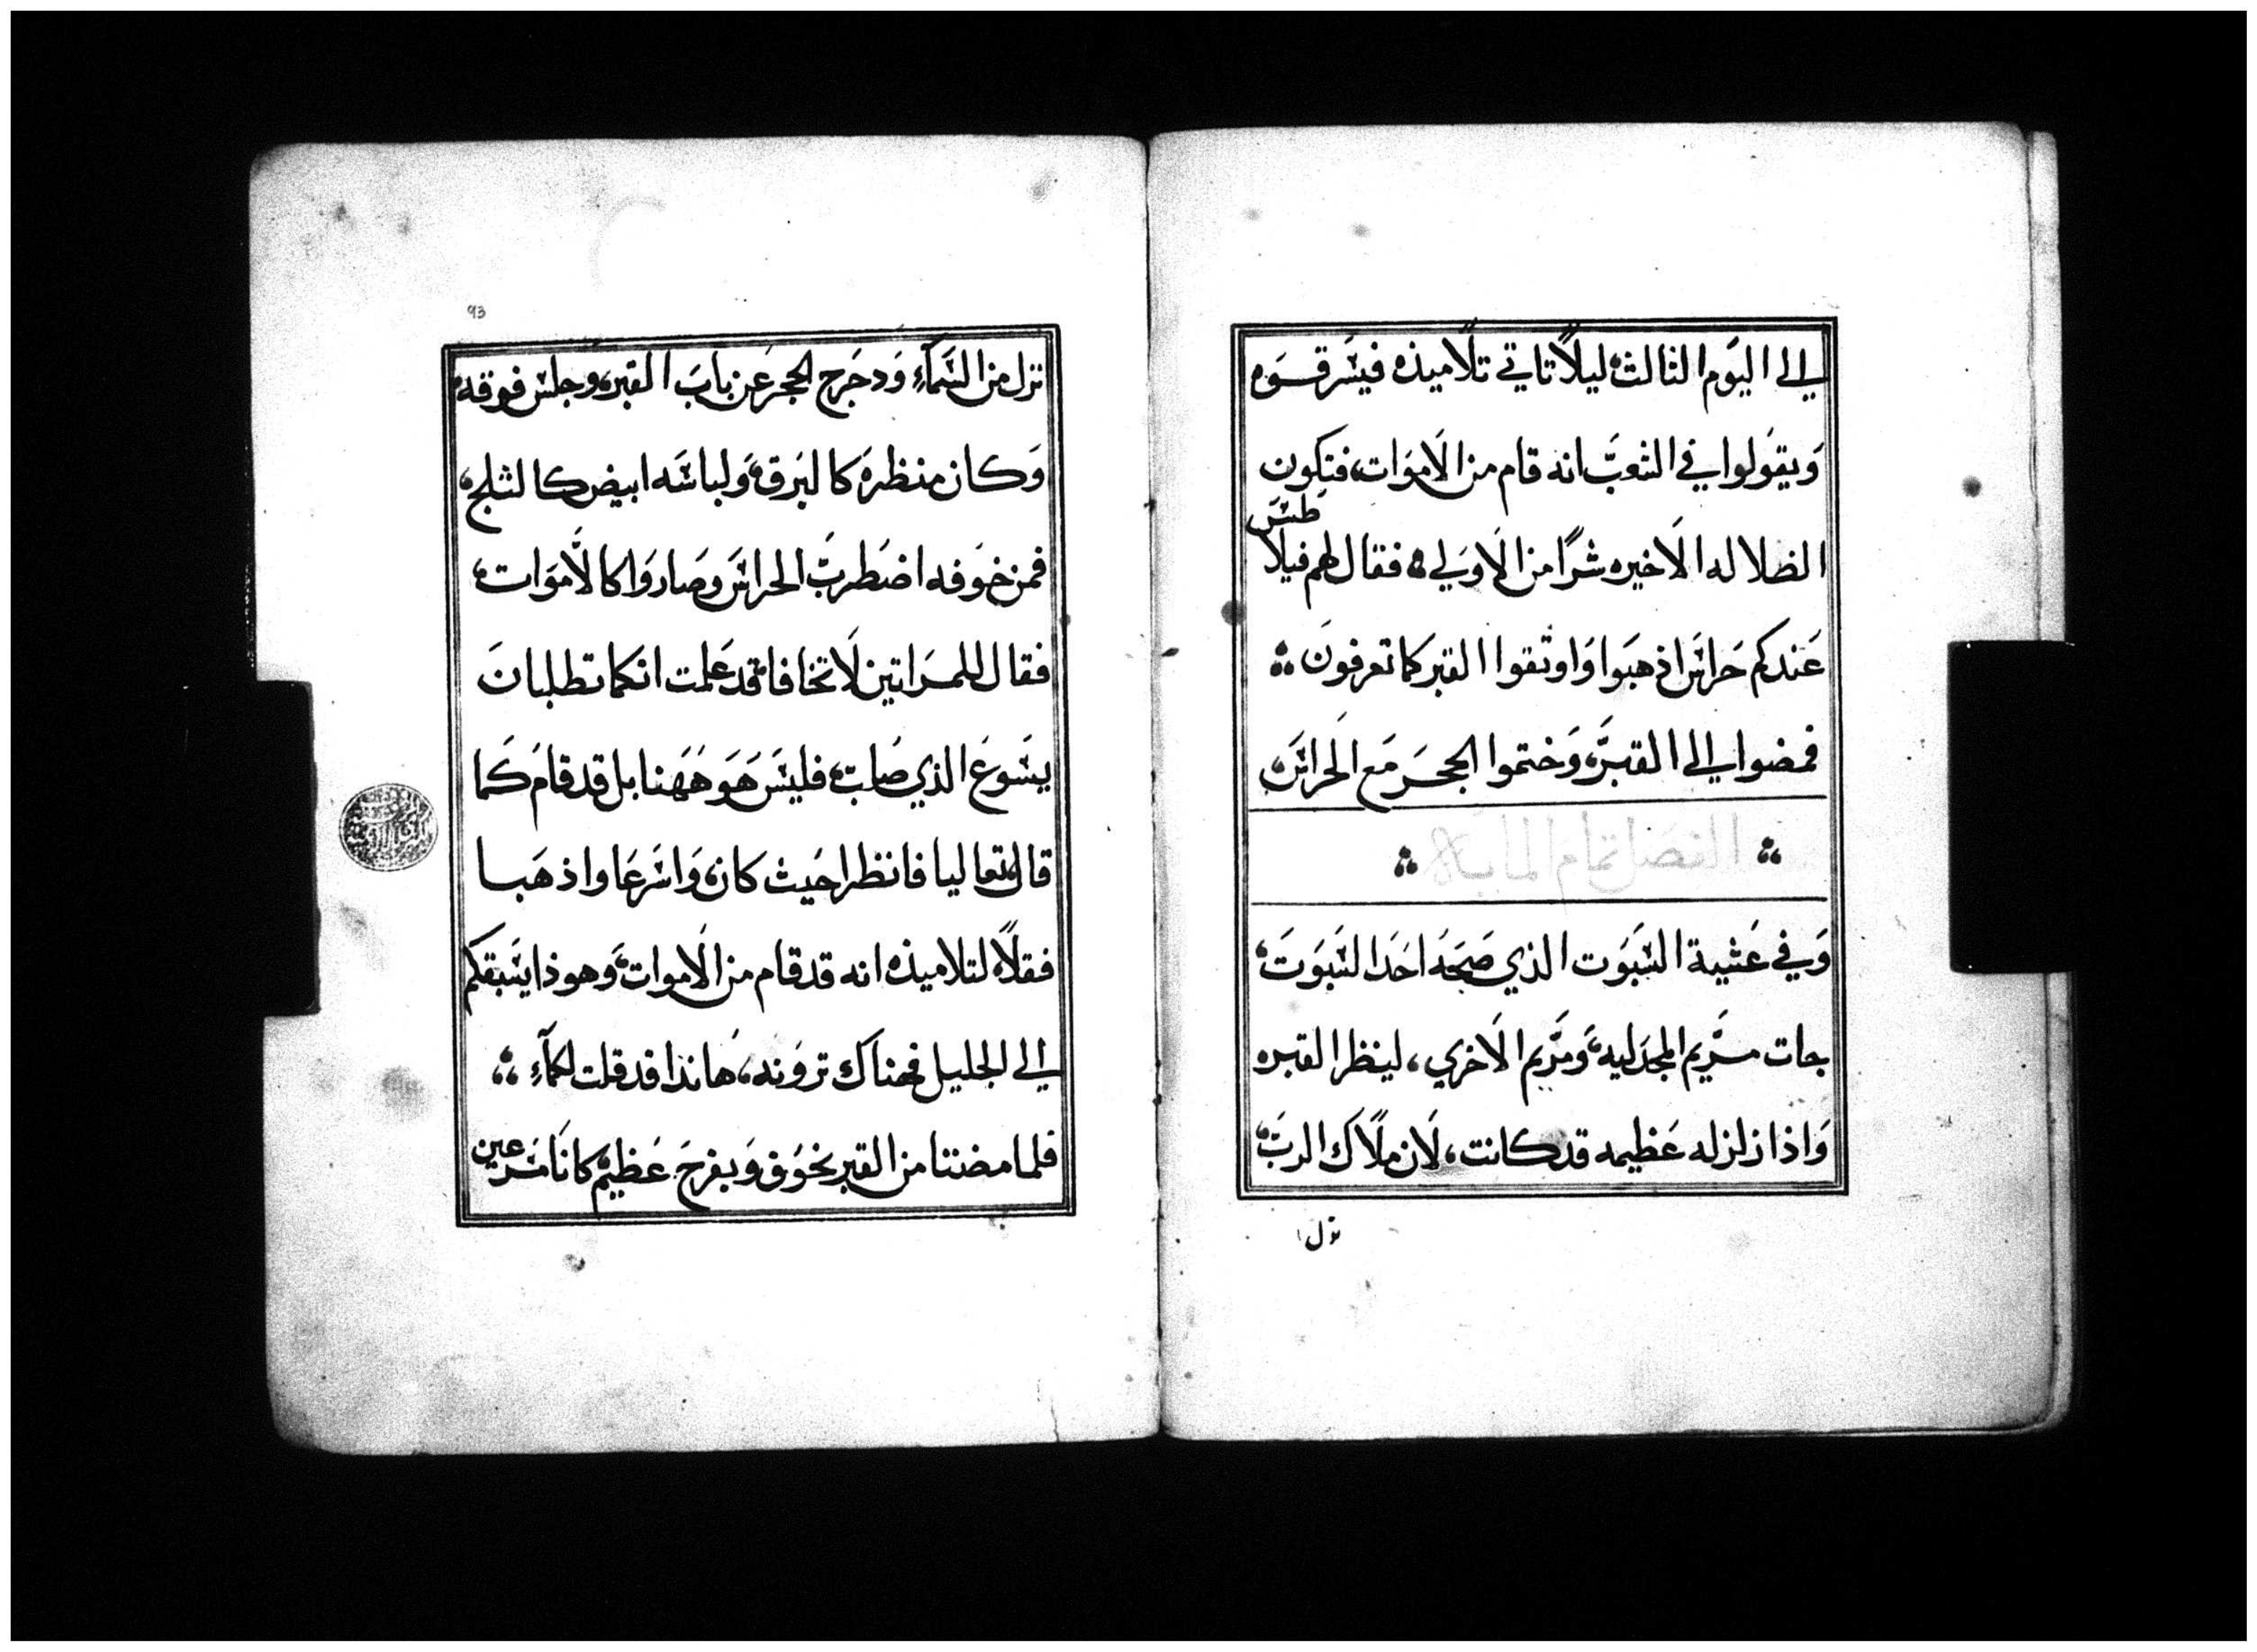 الي اليَوم الثالث، ليلاً تاتي تلاميذه فيسَرقوَه
وَيقوَلوا في الشعبَ انه قام من الاَموَات، فتكون
الضلاله الاَخيره شرًا من الاَوَلي فقال لهم فيلاَ
طسَ
عَندكم حَراسَ اذهبَوا وَاوثقوا القبر كما تعرفونَ
فمضوا الي القبرَ، وَختموا الحجَر مَع الحَراسَ،
الفصل تمام المايه
وَفي عَشية السَبَوت الذي صَبَحَه احَد السَبَوَت،
جات مرَيم المجدَليه، وَمرَيم الاَخري، لينظرا القبره
وَاذا زلزله عَظيمه قد كانت، لاَن ملاَك الربَ،
نزل
93
نزل من السَمآءِ وَدحَرج الحجر عَن بابَ القبره، وجلس فوقه
وَكان منظرهَ كالبَرق، وَلباسَه ابيض كالثلج،
فمن خوَفه اضَطربَ الحراسَ وصَاروَا كالاَموَات،
فقال للمرَاتين لاَ تخافا، قد عَلمت انكما تطلبانَ
يسَوعَ الذي صَلبَ، فليسَ هَوَ هَهَنا بل قد قامَ كَما
قال، تعاليا فانظرا حَيث كان، وَاسَرعَا واذهَبا
فقلاَ لتلاميذه انه قد قام من الاَموات، وَهوذا يسَبقكم
الي الجليل فهناك تروَنه، هَانذا قد قلت لكمآءِ
فلما مضتا من القبر بخوَف وَبفرحَ عَظيم، كانَا مسَرعَين